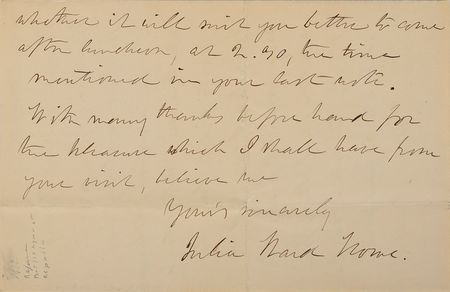 whether it will suit you better to come
after luncheon, at 2.30, the time
mentioned in your last note.
With many thanks before hand for
the pleasure which I shall have from
your visit, believe me
Yours sincerely
Julia Ward Howe.